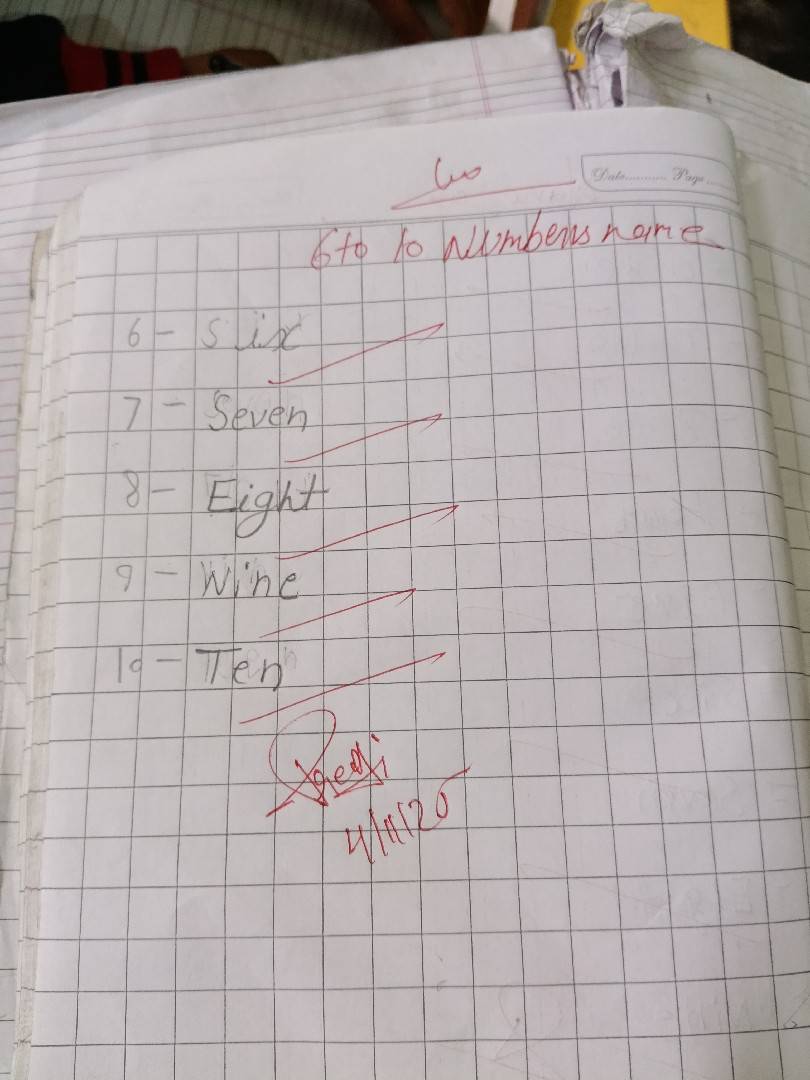 Date.......... Page.....
6 to 10 Numbers name
6 - Six
7 - Seven
8 - Eight
9 - Wine
10 - Ten
4/11/25